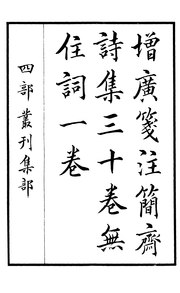 增廣箋注簡齋
詩集三十卷無
住詞一卷
四部叢刊集部